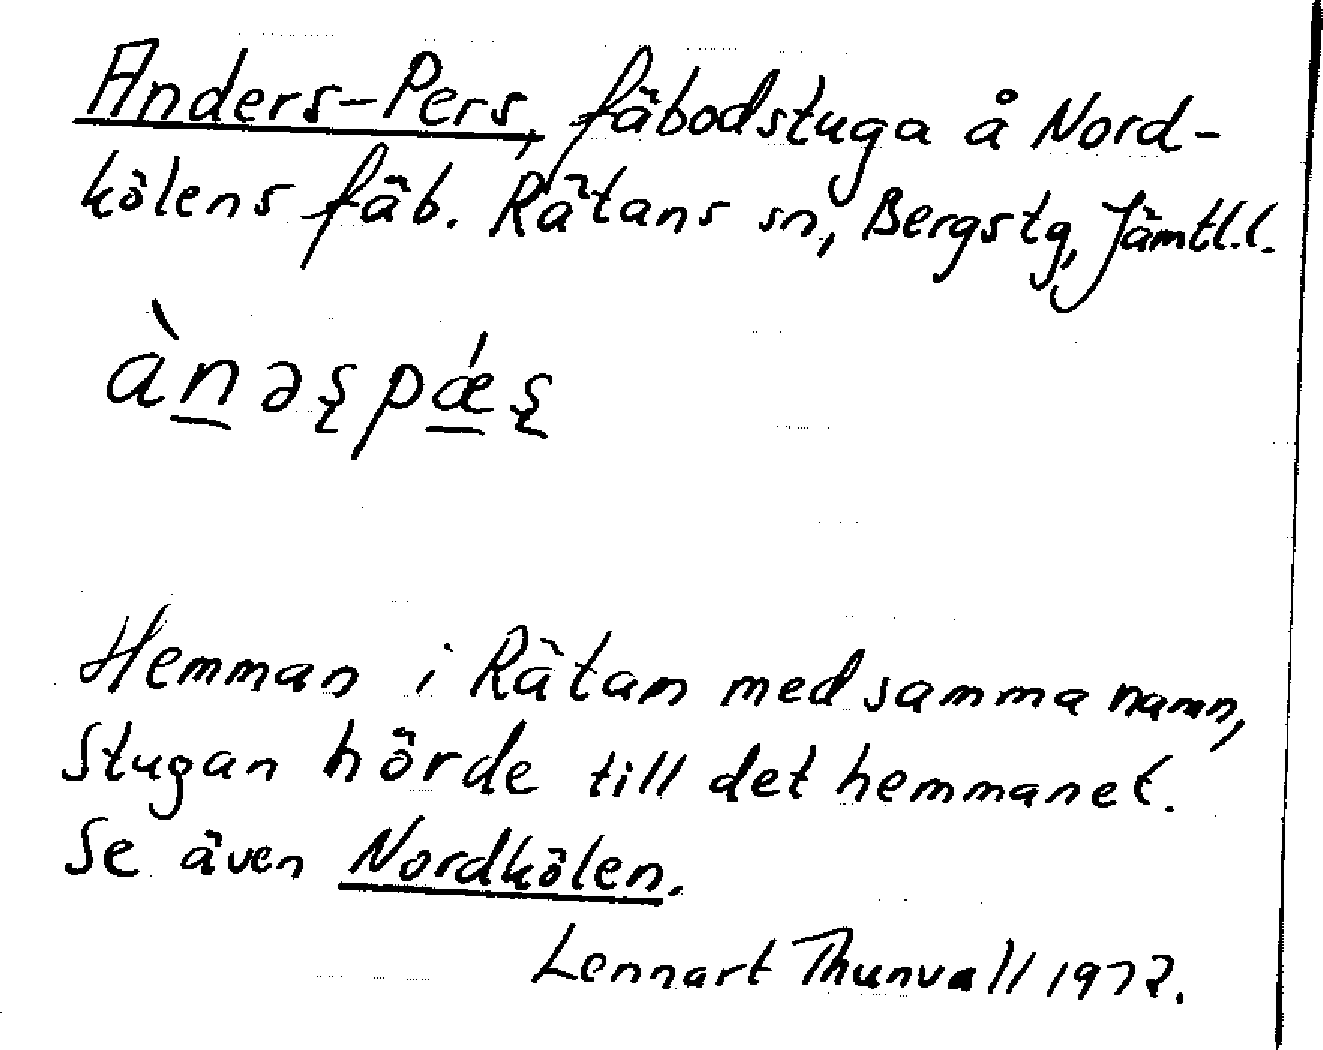 Anders-Pers, fäbodstuga å Nord-
kölens fäb. Rätans sn, Bergs tg, Jämtl.l.
ànəʂpǽʂ
Hemman i Rätan med samma namn,
Stugan hörde till det hemmanet.
Se även Nordkölen.
Lennart Thunvall 1972.